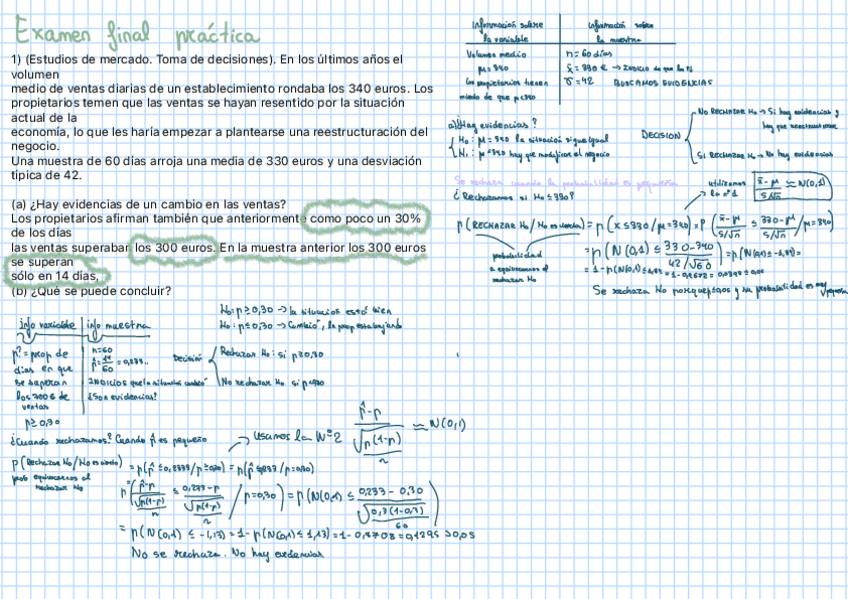 Examen final práctica
1) (Estudios de mercado. Toma de decisiones). En los últimos años el
volumen
medio de ventas diarias de un establecimiento rondaba los 340 euros. Los
propietarios temen que las ventas se hayan resentido por la situación
actual de la
economía, lo que les haría empezar a plantearse una reestructuración del
negocio.
Una muestra de 60 días arroja una media de 330 euros y una desviación
típica de 42.
(a) ¿Hay evidencias de un cambio en las ventas?
Los propietarios afirman también que anteriormente como poco un 30%
de los días
las ventas superaban los 300 euros. En la muestra anterior los 300 euros
se superan
sólo en 14 días,
(b) ¿Qué se puede concluir?
Información sobre
la variable
Volumen medio
μ=340
Los propietarios tienen
miedo de que μ<340
Información sobre
la muestra
n=60 días
x̄=330 €
σ=42 BUSCAMOS EVIDENCIAS
a) ¿Hay evidencias?
H₀: μ=340 la situación sigue igual
hay que modificar el negocio
DECISIÓN
No RECHAZAR H₀ → Si hay evidencias y
hay que reestructurar
Si RECHAZAR H₀ → No hay evidencias
Se rechaza cuando la probabilidad es pequeña
¿Rechazamos si
utilizamos
la nº1
x̄-μ / S/√n ≈ N(0,1)
p(RECHAZAR H₀/H₀ es cierto) = p(x≤330/μ=340) = p(x̄-μ / S/√n ≤ 330-μ / S/√n / μ=340)
= p(N(0,1) ≤ 330-340 / 42/√60)
probabilidad
a equivocarnos al
rechazar H₀
Se rechaza H₀ porque
H₀: p≥0,30 → la situación está bien
info variable
info muestra
p = prop de
días en que
se superan
los 300€ de
ventas
p≥0,30
n=60
p̂=14/60=0,233..
¿Son evidencias?
Decisión
Rechazar H₀: si
No rechazar H₀ si
¿Cuando rechazamos? Cuando p̂ es pequeño
→ Usamos la Nº2
p̂-p / √p(1-p)/n ≈ N(0,1)
p(Rechazar H₀/H₀ es cierto) = p(p̂≤0,2333/p≥0,30) = p(p̂≤0,233/p=0,30)
prob equivocarnos al
rechazar H₀
p(p̂-p / √p(1-p)/n ≤ 0,233-p / √p(1-p)/n / p=0,30) = p(N(0,1) ≤ 0,233-0,30 / √0,3(1-0,3)/60)
= p(N(0,1) ≤ -1,13) = 1-p(N(0,1)≤1,13) = 1-0,8708 = 0,1295 >0,05
No se rechaza. No hay evidencias